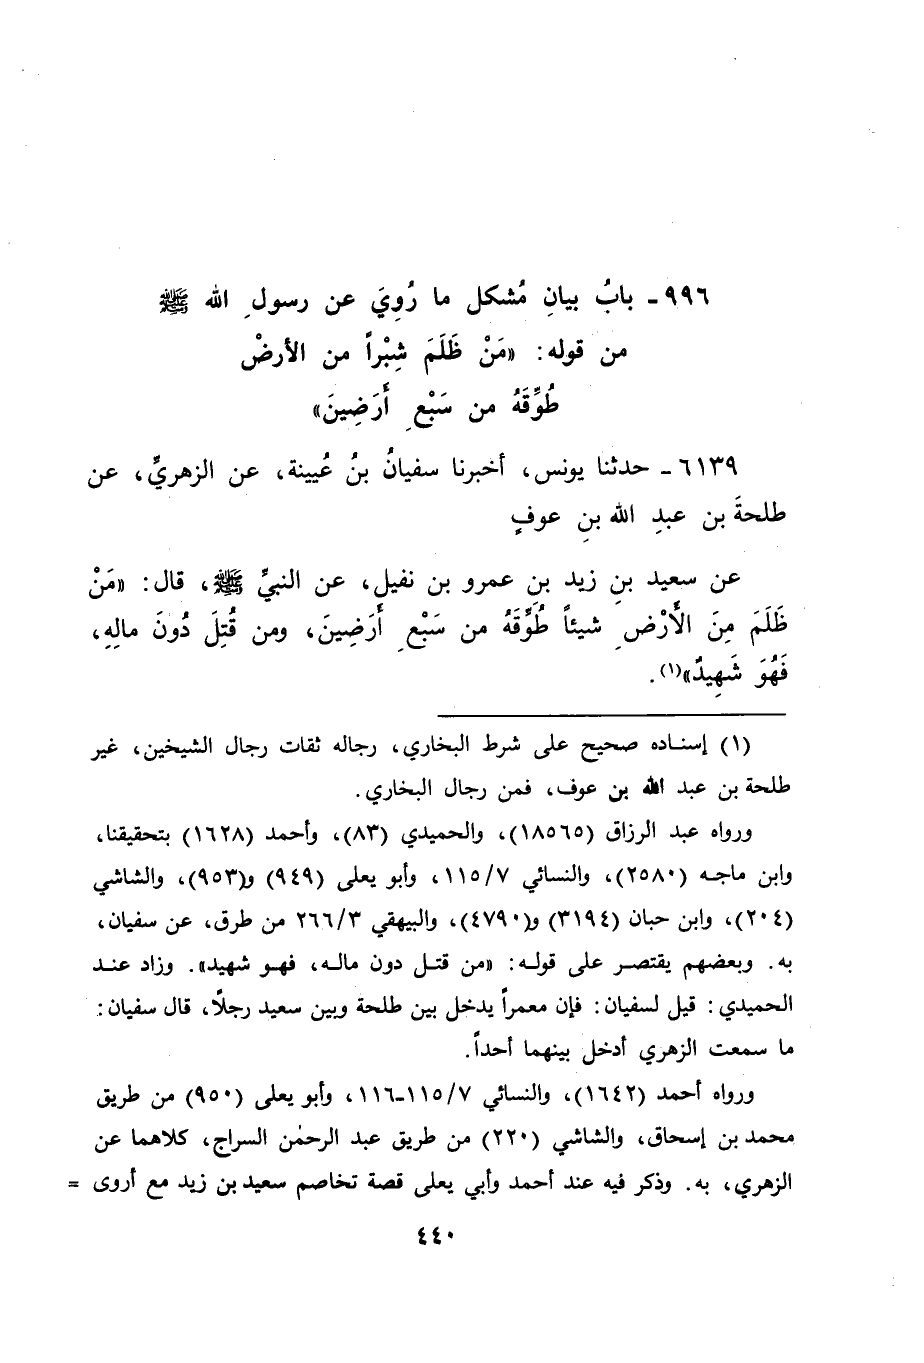 ٩٩٦ـ بابُ بيانِ مُشكل ما رُوِيَ عن رسولِ الله ﷺ
من قوله: «مَنْ ظَلَمَ شِبْراً من الأرضْ
طُوِّقَهُ من سَبْعِ أَرَضِينَ»
٦١٣٩ـ حدثنا يونس، أخبرنا سفيانُ بنُ عُيينة، عن الزهريِّ، عن
طلحةَ بن عبدِ الله بنِ عوفٍ
عن سعيد بنِ زيد بن عمرو بن نفيل، عن النبيِّ ﷺ، قال: «مَنْ
ظَلَمَ مِنَ الأَرْضِ شيئاً طُوِّقَهُ من سَبْعِ أَرَضِينَ، ومن قُتِلَ دُونَ مالِهِ،
فَهُوَ شَهِيدٌ»(١).
(١) إسناده صحيح على شرط البخاري، رجاله ثقات رجال الشيخين، غير
طلحة بن عبد الله بن عوف، فمن رجال البخاري.
ورواه عبد الرزاق (١٨٥٦٥)، والحميدي (٨٣)، وأحمد (١٦٢٨) بتحقيقنا،
وابن ماجه (٢٥٨٠)، والنسائي ١١٥/٧، وأبو يعلى (٩٤٩) و(٩٥٣)، والشاشي
(٢٠٤)، وابن حبان (٣١٩٤) و(٤٧٩٠)، والبيهقي ٢٦٦/٣ من طرق، عن سفيان،
به. وبعضهم يقتصر على قوله: «من قتل دون ماله، فهو شهيد». وزاد عند
الحميدي: قيل لسفيان: فإن معمراً يدخل بين طلحة وبين سعيد رجلاً، قال سفيان:
ما سمعت الزهري أدخل بينهما أحداً.
ورواه أحمد (١٦٤٢)، والنسائي ١١٥/٧ـ١١٦، وأبو يعلى (٩٥٠) من طريق
محمد بن إسحاق، والشاشي (٢٢٠) من طريق عبد الرحمٰن السراج، كلاهما عن
الزهري، به. وذكر فيه عند أحمد وأبي يعلى قصة تخاصم سعيد بن زيد مع أروى =
٤٤٠